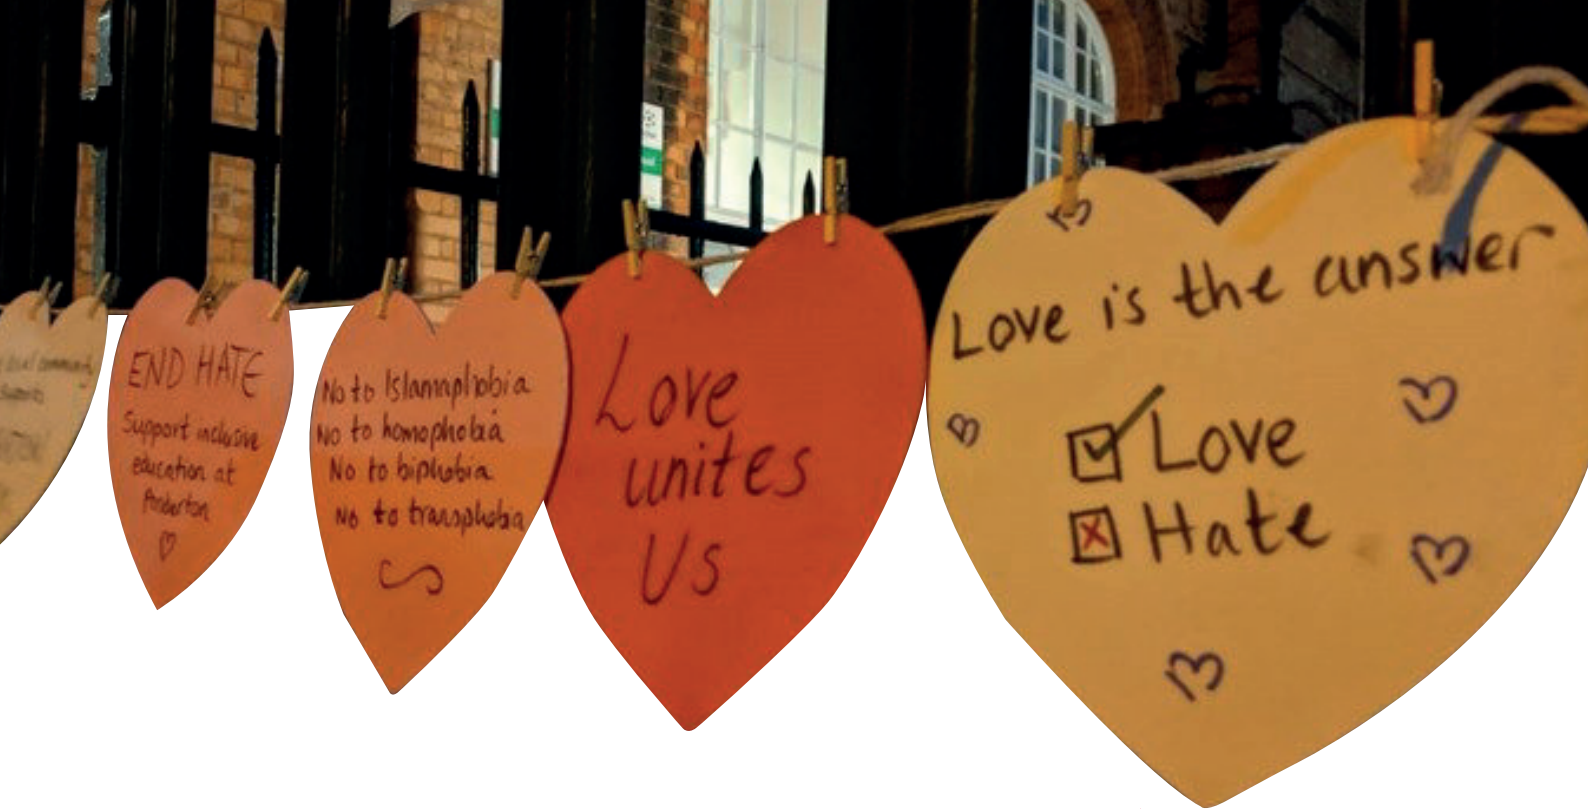 END HATE
Support inclusive
education at
Anderton
No to Islamaphobia
No to homophobia
No to biphobia
No to transphobia
Love
unites
Us
Love is the answer
Love
Hate